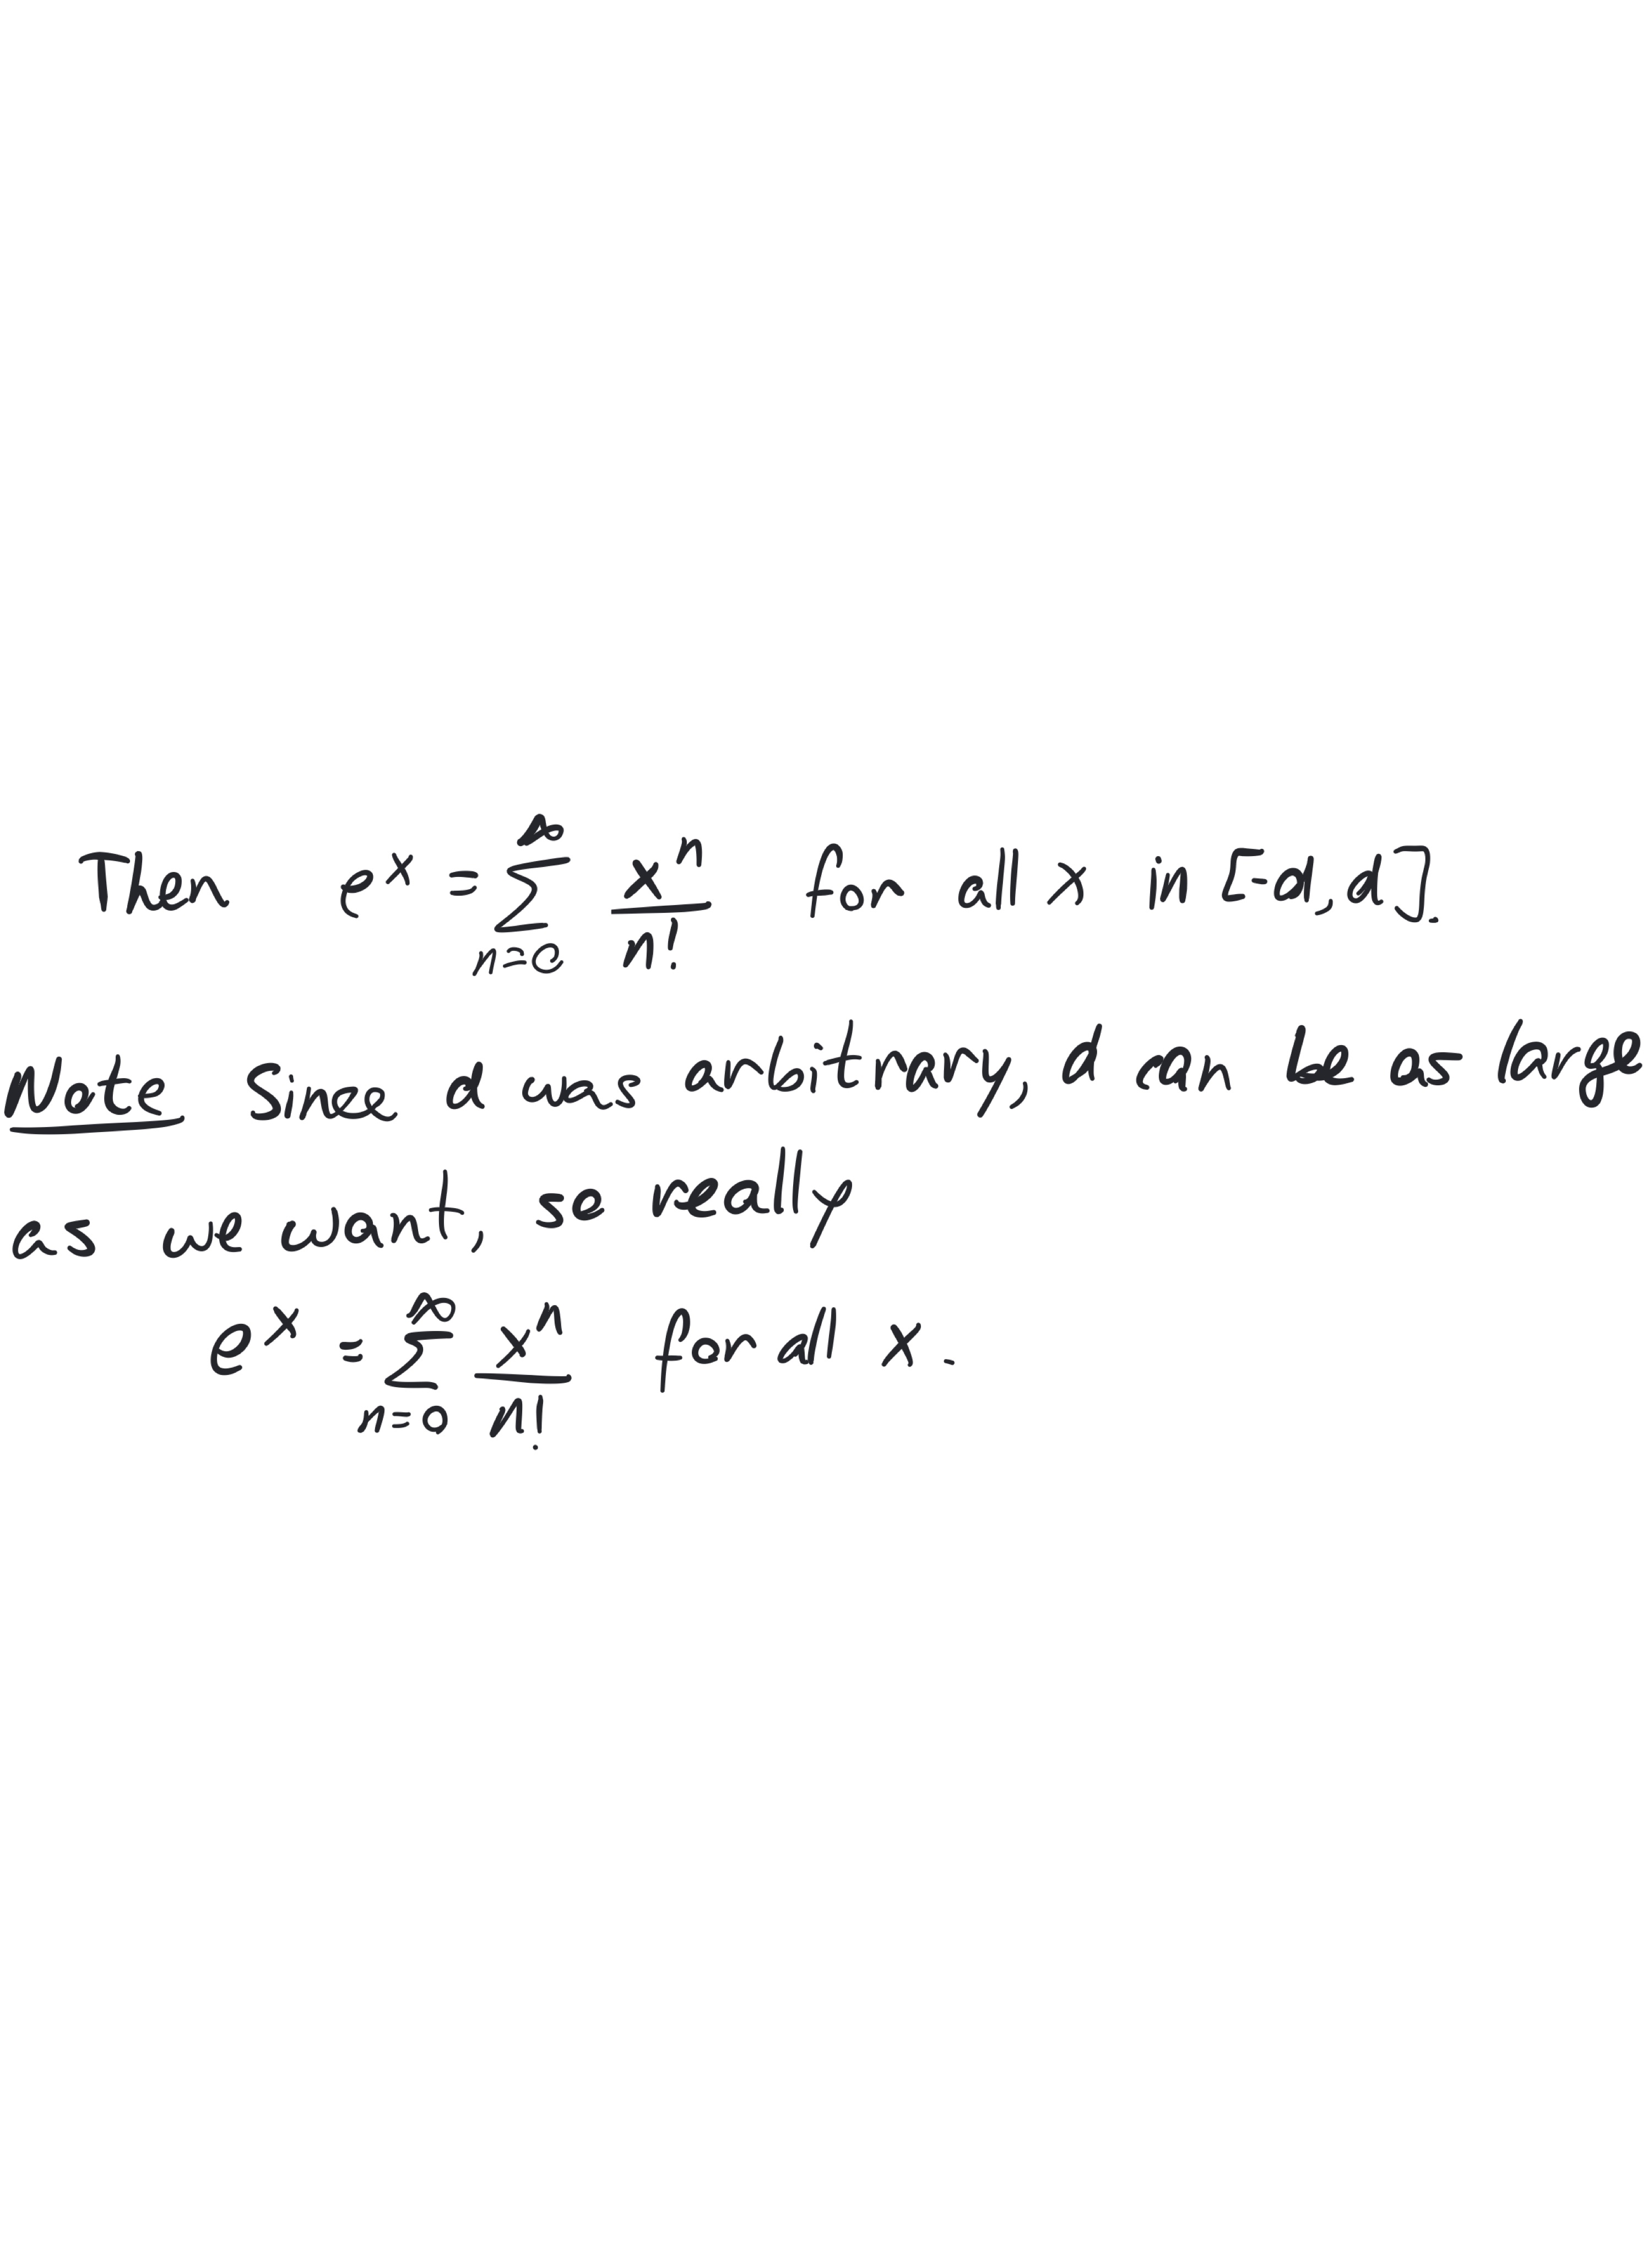 Then e^x = ∑_{n=0}^{∞} x^n / n! for all x in [-d, d].
Note Since d was arbitrary, d can be as large
as we want, so really
e^x = ∑_{n=0}^{∞} x^n / n! for all x.